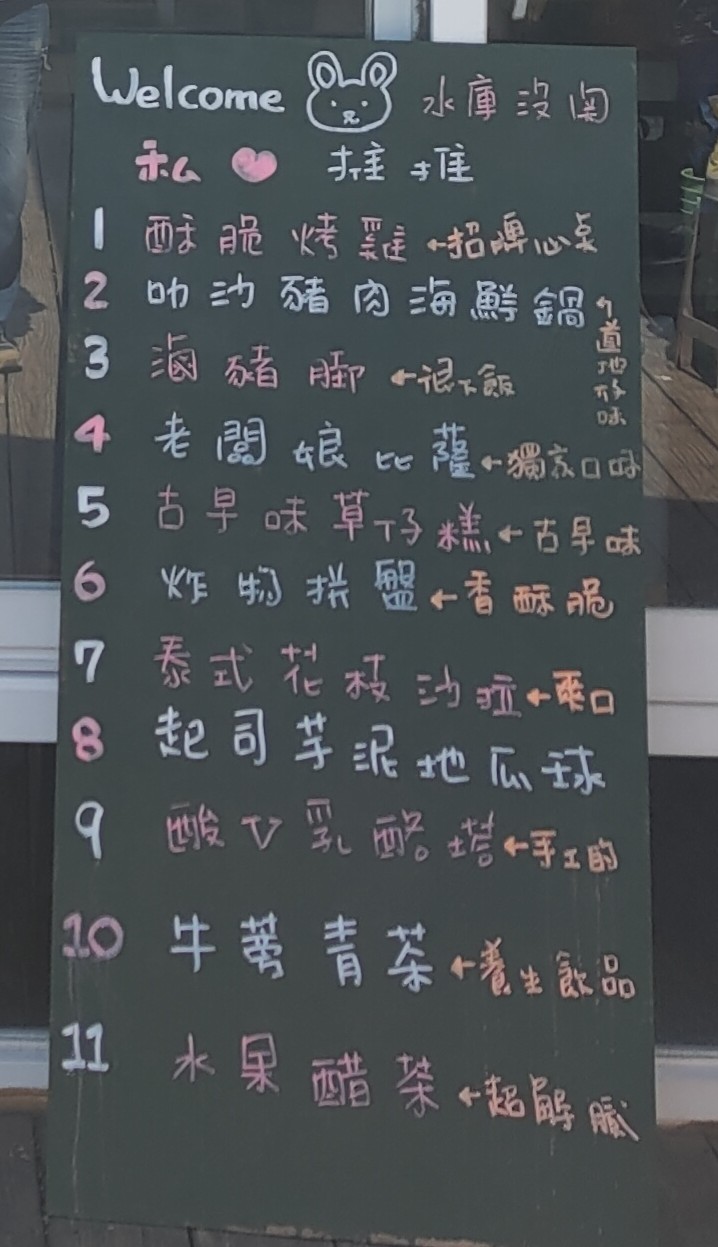 Welcome 水庫沒関
私 ♥ 推推
1 酥脆烤雞 ←招牌心桌
2 叻沙豬肉海鮮鍋 ↰道地好味
3 滷豬腳 ←很下飯
4 老闆娘比薩 ←獨家口味
5 古早味草仔糕 ←古早味
6 炸物拼盤 ←香酥脆
7 泰式花枝沙拉 ←爽口
8 起司芋泥地瓜球
9 酸V乳酪塔 ←手工的
10 牛蒡青茶 ←養生飲品
11 水果醋茶 ←超解膩